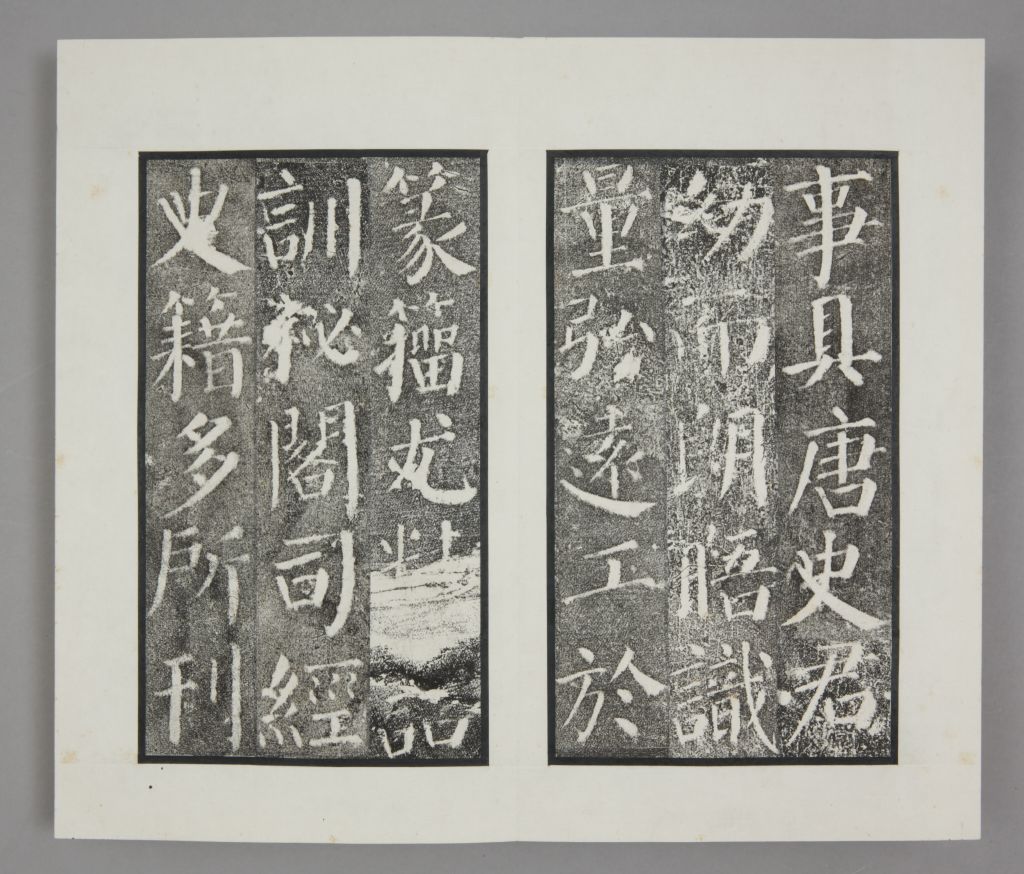 事具唐史君
幼而朗晤識
量弘遠工於
篆籀尤
訓祕閣司經
史籍多所刊